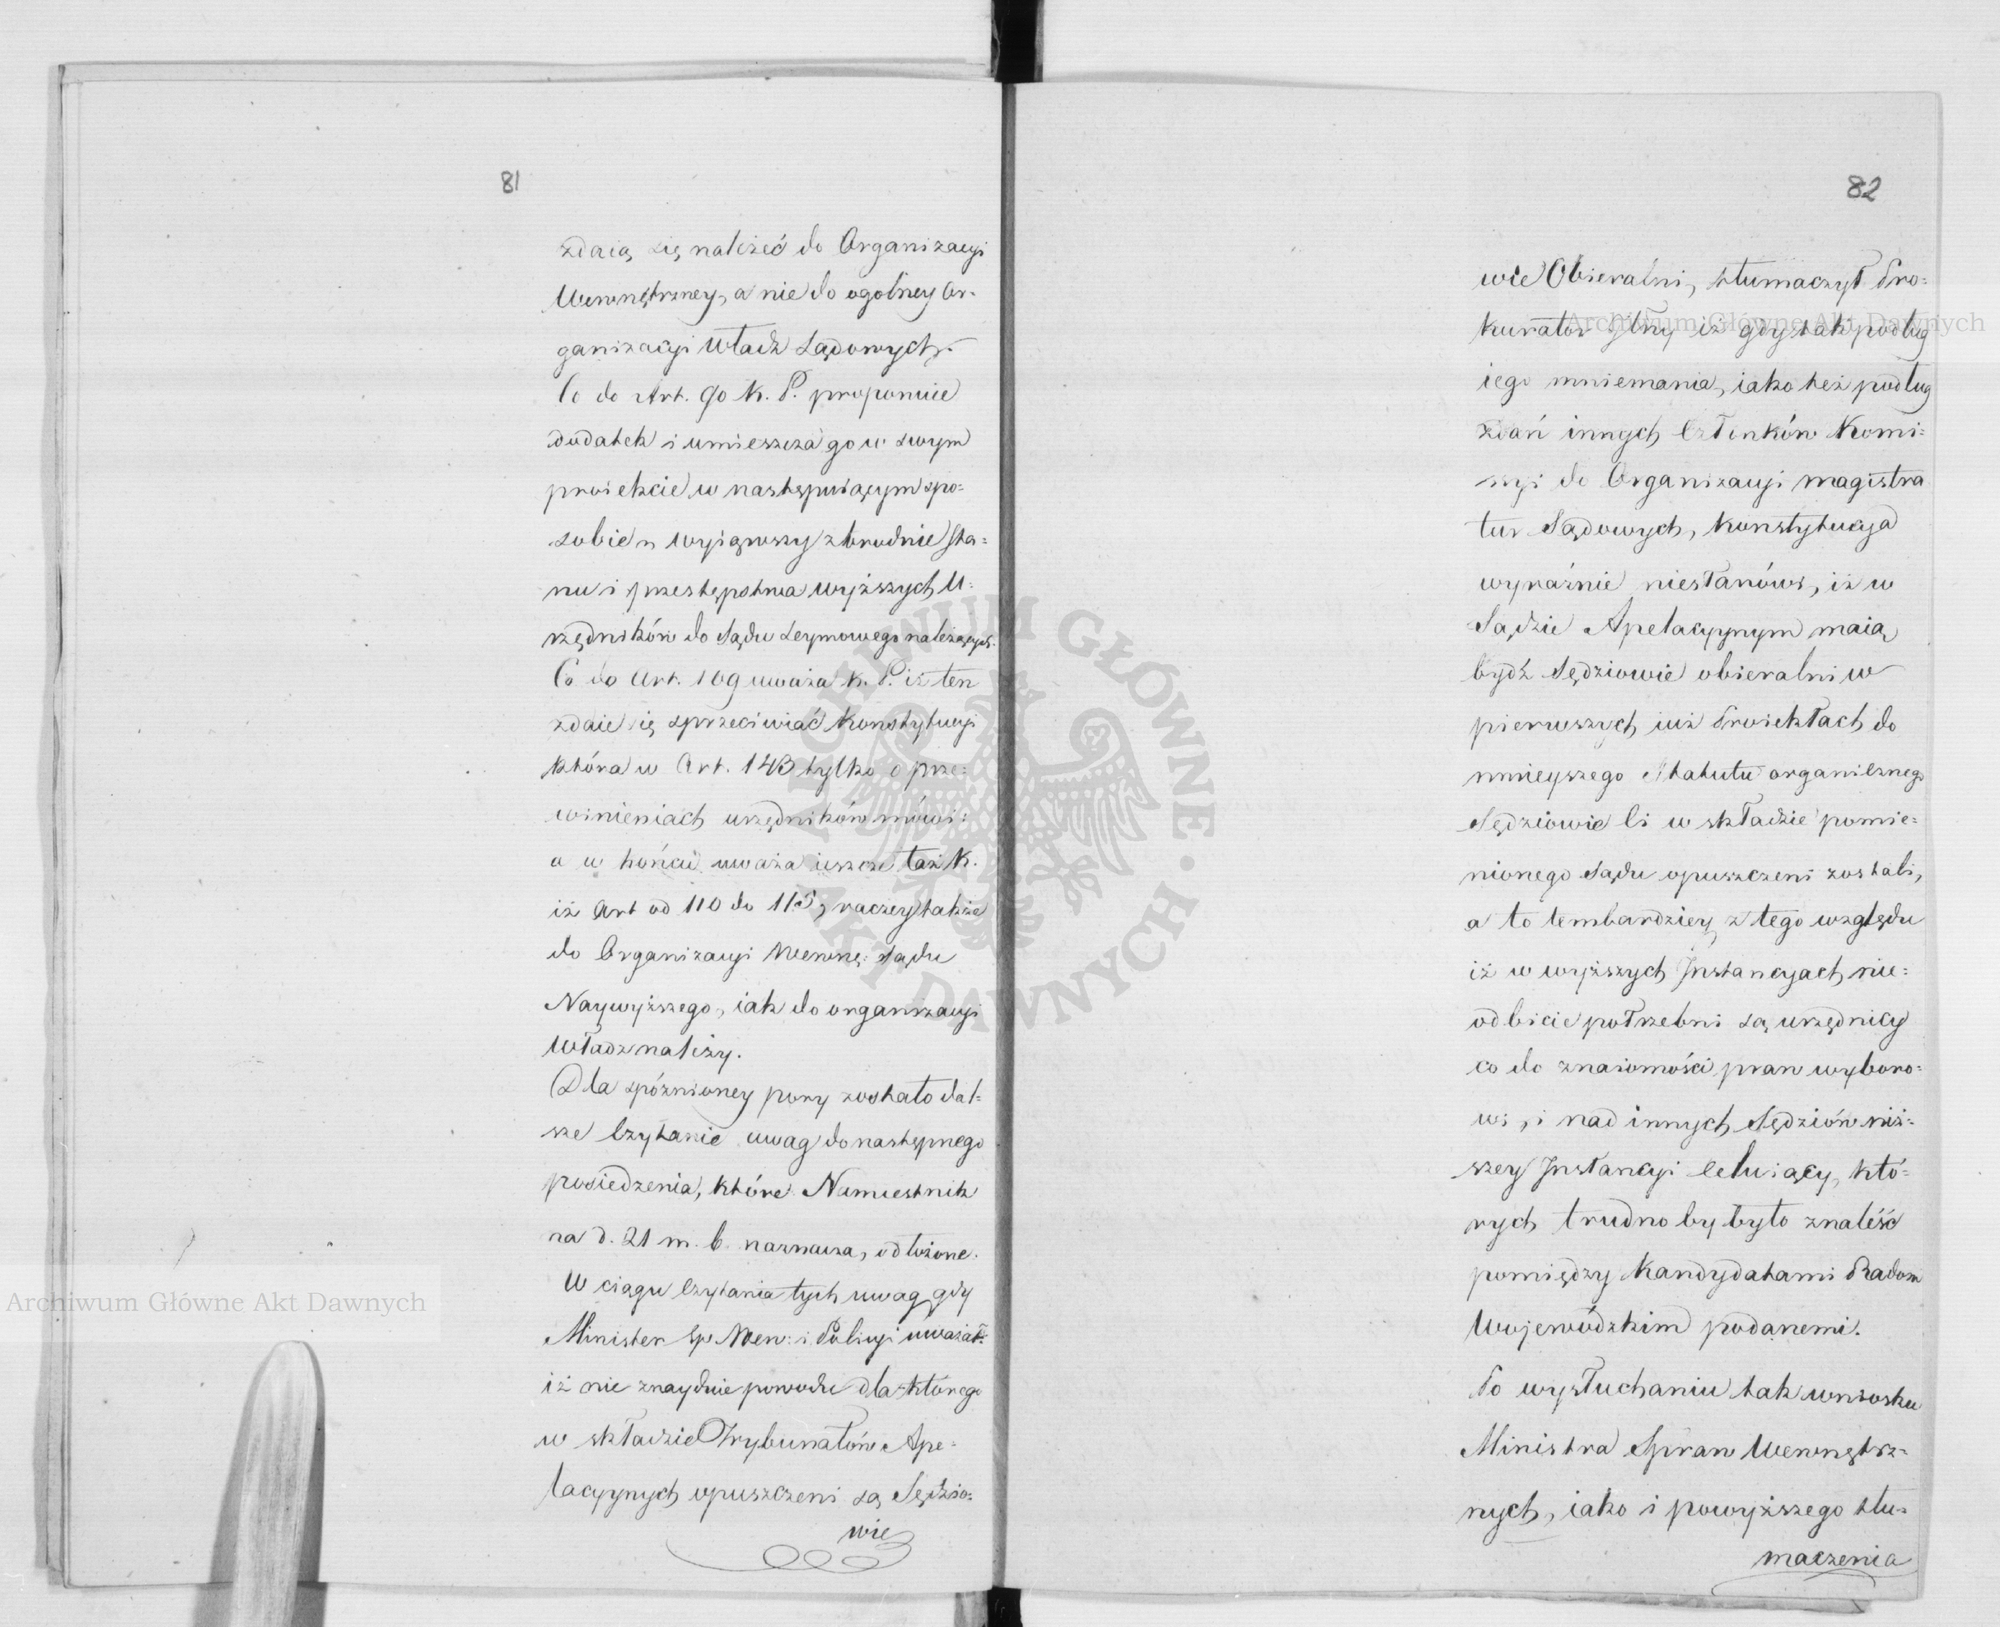 81
zdaią się należeć do Organizacyi
Wewnętrzney, a nie do ogólney Or-
ganizacyi Władz Sądowych.
Co do Art. 90 K. P. proponuie
dodatek i umieszcza go w swym
proiekcie w następuiącym spo-
sobie „ wyiąwszy zbrodnie Sta-
nu i przestępstwa wyższych U-
rzędników do Sądu Seymowego należących.
Co do Art. 109 uważa K. P. iż ten
zdaie się sprzeciwiać Konstytucyi
która w Art. 143 tylko o prze-
winieniach urzędników mówi:
a w końcu uważa ieszcze taż K.
iż Art od 110 do 115, raczey także
do Organizacyi Wewnę: Sądu
Naywyższego, iak do organizacyi
Władz należy.
Dla spóźnioney pory zostało dal-
sze Czytanie uwag do następnego
posiedzenia, które Namiestnik
na d. 21 m. b. naznacza, odłożone.
W ciągu Czytania tych uwag, gdy
Minister Sp: Wew: i Policyi uważał:
iż nie znayduie powodu dla którego
w składzie Trybunałów Ape-
lacyynych opuszczeni są Sędzio-
wie
82
wie Obieralni, tłumaczył Pro-
kurator Jlny iż gdy tak podług
iego mniemania, iako też podług
zdań innych Członków Komi-
ssyi do Organizacyi magistra
tur Sądowych, Konstytucya
wyraźnie niestanowi, iż w
Sądzie Apelacyynym maią
bydź Sędziowie obieralni w
pierwszych iuż Proiektach do
ninieyszego Statutu organicznego
Sędziowie Ci w składzie pomie-
nionego Sądu opuszczeni zostali,
a to tembardziey z tego względu
iż w wyższych Instancyach nie-
odbicie potrzebni są urzędnicy
co do znaiomości praw wyboro-
wi, i nad innych Sędziów niż-
szey Instancyi celuiący, któ-
rych trudno by było znaleść
pomiędzy Kandydatami Radom
Wojewódzkim podanemi.
Po wysłuchaniu tak wniosku
Ministra Spraw Wewnętrz-
nych, iako i powyższego tłu-
maczenia
Archiwum Główne Akt Dawnych
Archiwum Główne Akt Dawnych
ARCHIWUM GŁÓWNE · AKT DAWNYCH ·